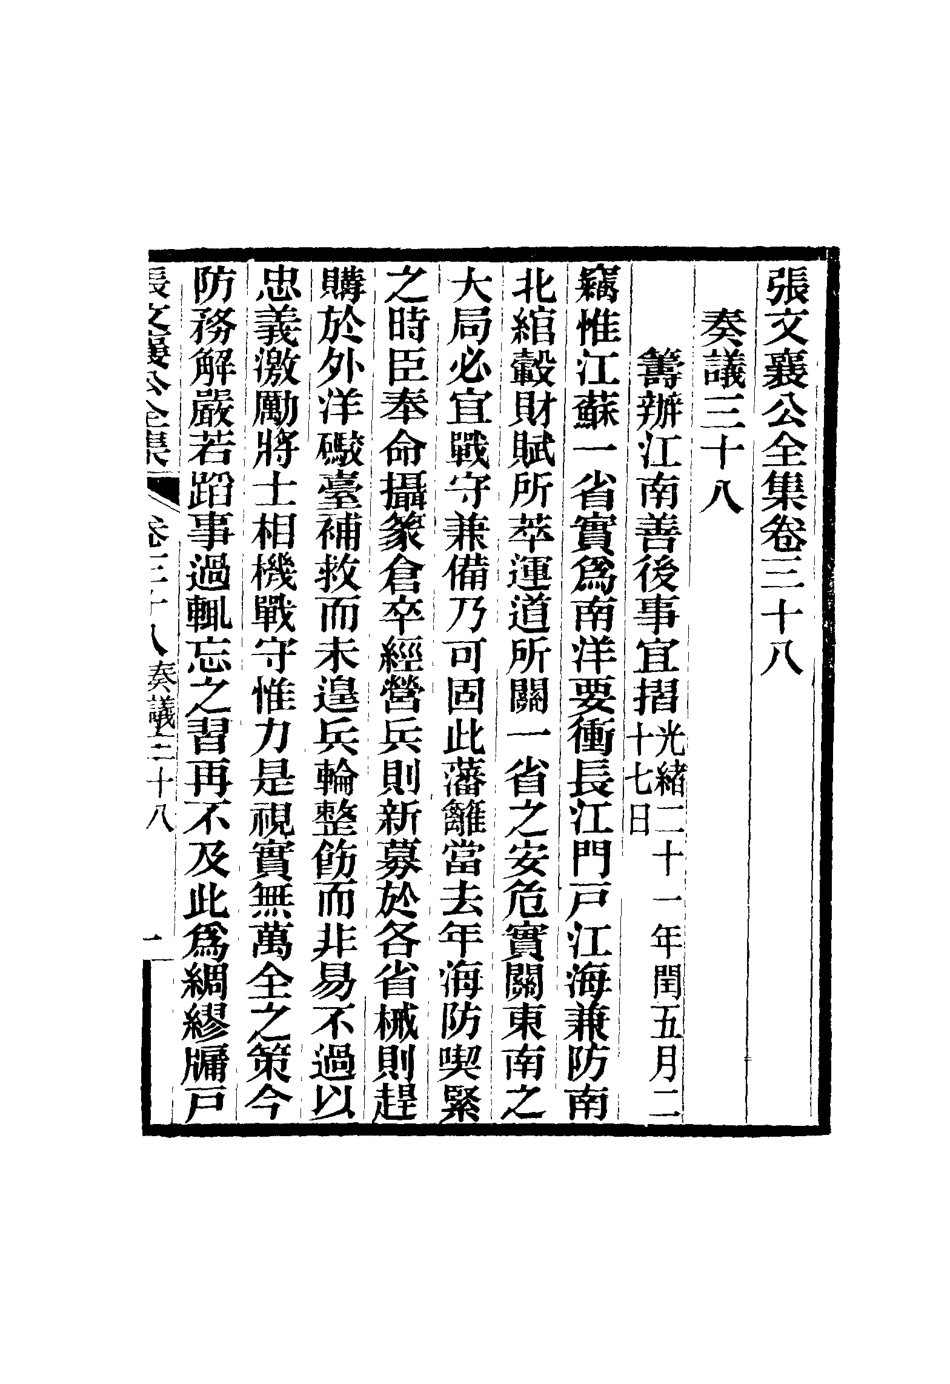 張文襄公全集卷三十八
奏議三十八
籌辦江南善後事宜摺光緒二十一年閏五月二
十七日
竊惟江蘇一省實爲南洋要衝長江門戸江海兼防南
北綰轂財賦所萃運道所關一省之安危實關東南之
大局必宜戰守兼備乃可固此藩籬當去年海防喫緊
之時臣奉命攝篆倉卒經營兵則新募於各省械則趕
購於外洋礮臺補救而未遑兵輪整飭而非易不過以
忠義激勵將士相機戰守惟力是視實無萬全之策今
防務解嚴若蹈事過輒忘之習再不及此爲綢繆牖戸
張文襄公全集 卷三十八 奏議三十八 一